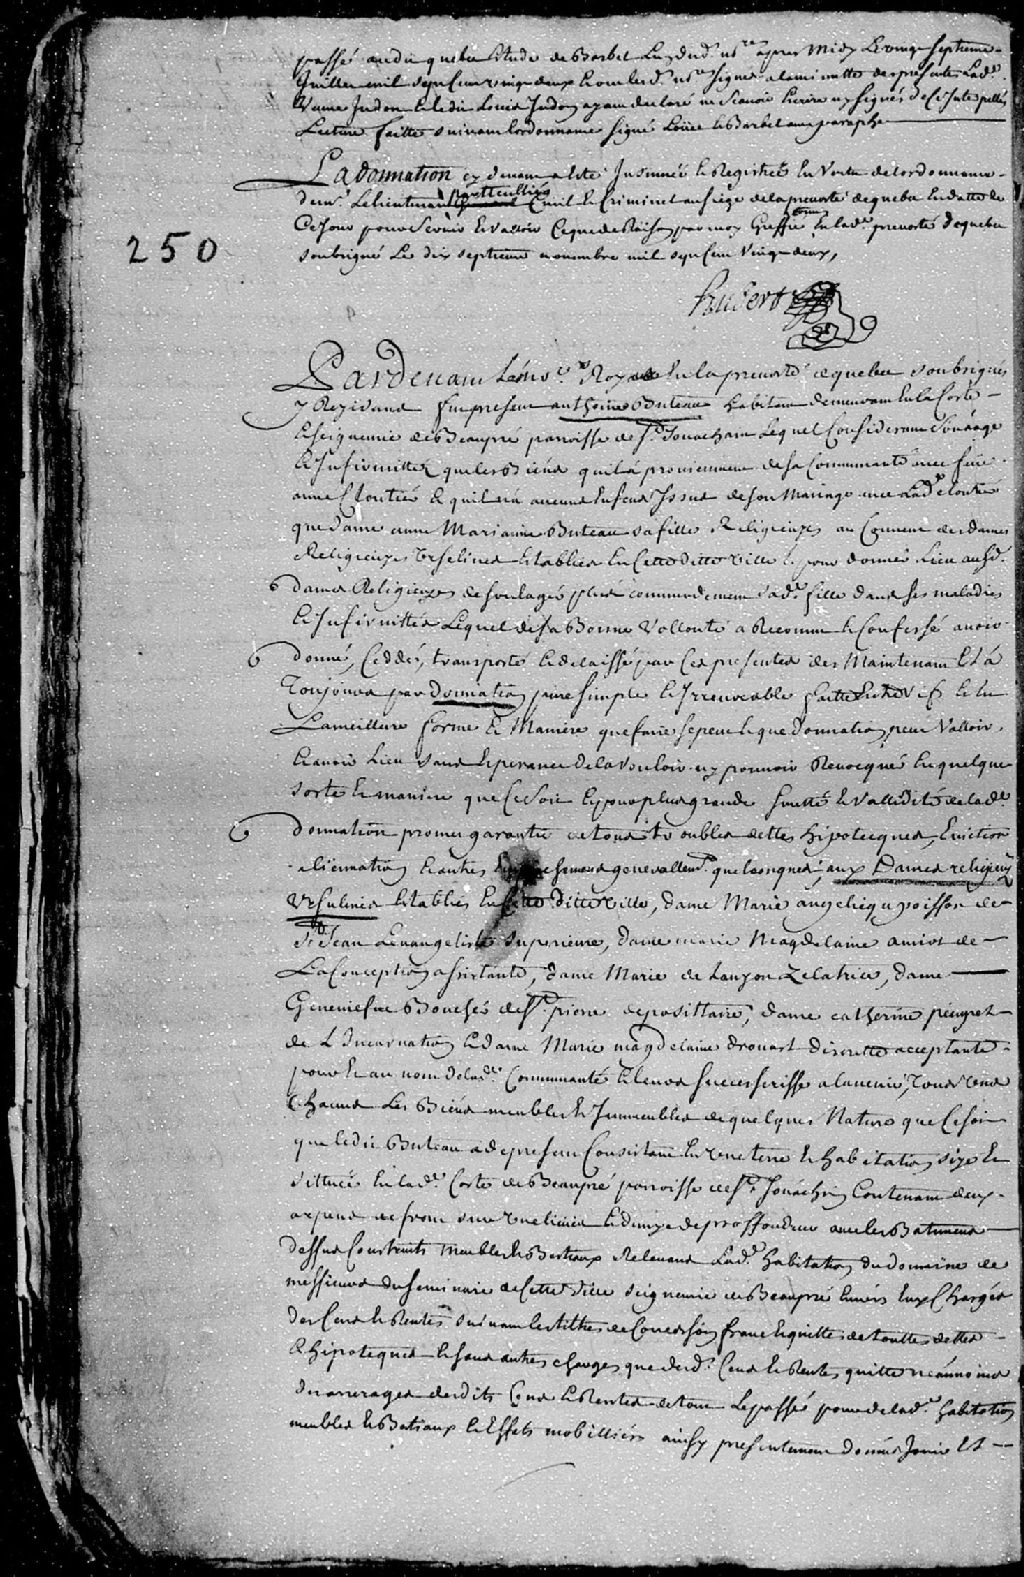 passé audit quebec Etude de Barbel Led. nre apres Midy Le vingt septieme
Juillet mil sept cent vingt deux Et ont lesd. nre signé a la minutte des presentes Lad.
Veuve Judon Et ledit Louis Judon ayant declaré ne sçavoir Ecrire ny signer de ce Interpellés
Lecture faitte suivant l'ordonnance signé Loüet et Barbel avec paraphe
La donnation cy devant a Eté Insinuée et Registrée En Vertu de l'ordonnance
de mr Le Lieutenant particullier Civil et Criminel au siege de la prevosté de quebec En datte de
Ce Jour pour servir Et valloir Ce que de Raison par moy Greffier En lad. prevosté de quebec
soubsigné Le dix septieme novembre mil sept cent vingt deux,
250
Pardevant Les no.res Royaux En la prevosté de quebec soubsignés
y Residans fut present anthoine Buteau habitant demeurant En la Coste
Et seigneurie de Beaupré paroisse de St. Jouachain Lequel Considerant son aage
Et Infirmittez que les Biens quil a proviennent de sa Communauté avec feue
anne Cloutié Et quil n'a aucuns Enfens Issus de son Mariage avec Lad. cloutié
que Dame anne Marianne Buteau sa fille Religieuze au Couvent des Dames
Religieuzes Urselines Etablies En Cette ditte ville Et pour donner Lieu ausd.
dames Religieuzes de soulager plus commodement sad. fille dans ses maladies
Et Infirmittés Lequel de sa Bonne Vollonté a Reconnu Et Confessé avoir
donné, Ceddé, transporté Et delaissé par Ces presentes des Maintenant Et a
Toujours par donnation pure simple Et Irrevocable faitte Entre Vifs Et En
La meilleure forme Et Maniere que faire se peut Et que donnation peut Valloir
Et avoir Lieu sans Esperance de la vouloir ny pouvoir Revocquer En quelque
sorte Et maniere que Ce soit Et pour plus grande suretté Et Vallidité de lad.
donnation promet garantir de tous troubles dettes hipotecques, Eviction
alienation Et autres Empeschemens generallemt. quelconques, aux Dames religieuzes
Ursulines Etablies En Cette ditte ville, dame Marie angelique poisson de
St Jean L'evangeliste superieure, dame marie Magdelaine amiot de
La Conception assistante, dame Marie de Lauzon Zelatrice, dame
Geneviefve Boucher de St. pierre depossittaire, dame catherine peuvret
de L'Incarnation Et dame Marie magdelaine drouart discrette acceptante
pour Et au nom de lad. Communauté Et leurs successerisse a l'avenir, Tous Et un
Chacun Les Biens meubles Et Immeubles de quelques Nature que Ce soit
que ledit Buteau a de present Consistant En une terre Et habitation size Et
sittuée En lad. Coste de Beaupré paroisse de St. Jouachin Contenant deux
arpens de front sur une lieüe Et demye de proffondeur avec les Batimens
dessus Construits meubles Et Bestiaux Relevant Lad. habitation du domaine de
messieurs du seminaire de Cette ville seigneurie de Beaupré Envers Eux Chargée
des Cens Et Rentes suivant les tiltres de Concession franc Et quitte de touttes dettes
Et hipoteques Et sans autres charges que desd. Cens Et Rentes quitte neanmoins
des arrerages desdits Cens Et Rentes de tout Le passé pour de lad. habitation
meubles Et Bestiaux Et Effets mobilliers ainsy presentement donnés Jouir Et